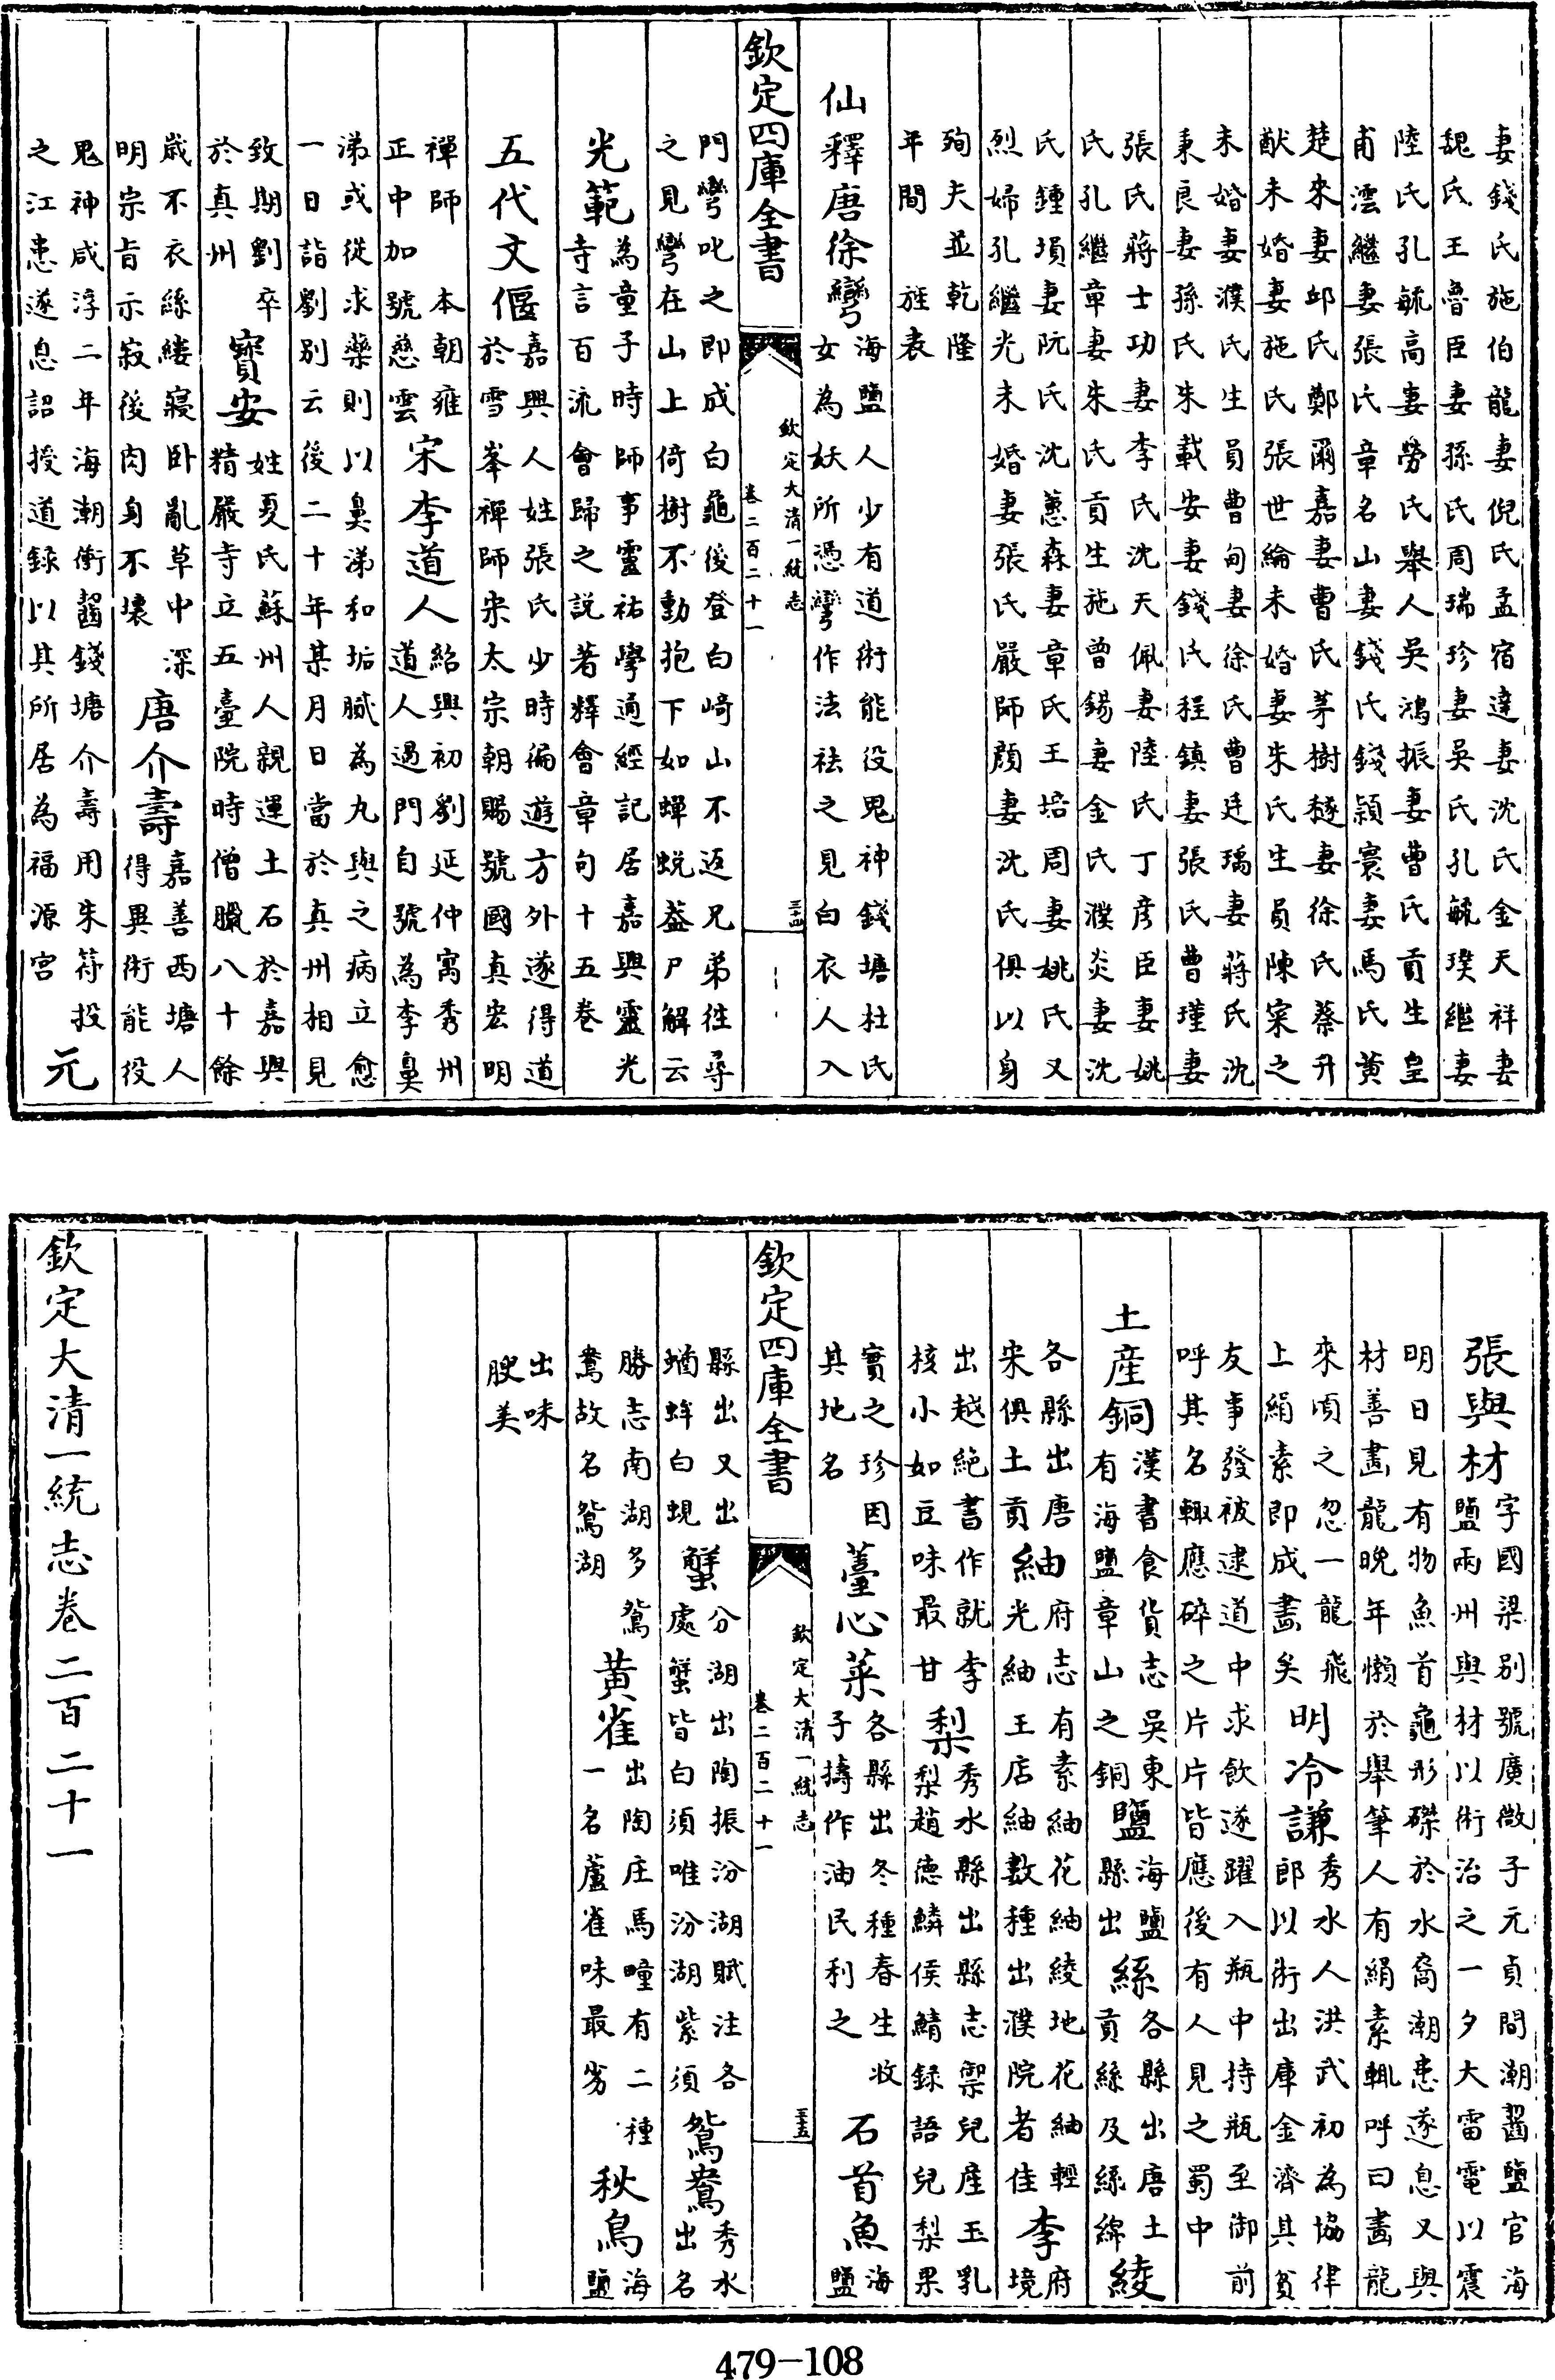 妻錢氏施伯龍妻倪氏孟宿達妻沈氏金天祥妻
魏氏王魯臣妻孫氏周瑞珍妻吳氏孔毓璞繼妻
陸氏孔毓高妻勞氏舉人吳鴻振妻曹氏貢生皇
甫澐繼妻張氏章名山妻錢氏錢穎寰妻馬氏黃
楚來妻邱氏鄭爾嘉妻曹氏茅樹𣚴妻徐氏蔡升
猷未婚妻施氏張世綸未婚妻朱氏生員陳寀之
未婚妻濮氏生員曹甸妻徐氏曹廷瑀妻蔣氏沈
秉良妻孫氏朱載安妻錢氏程鎮妻張氏曹瑾妻
張氏蔣士功妻李氏沈天佩妻陸氏丁彦臣妻姚
氏孔繼章妻朱氏貢生施曾錫妻金氏濮炎妻沈
氏鍾塤妻阮氏沈蕙森妻章氏王培周妻姚氏又
烈婦孔繼光未婚妻張氏嚴師顔妻沈氏俱以身
殉夫並乾隆
年間旌表
仙釋唐徐彎
海鹽人少有道術能役鬼神錢塘杜氏
女為妖所憑彎作法祛之見白衣人入
欽定四庫全書
欽定大清一統志
卷二百二十一
三十四
門彎叱之即成白龜後登白﨑山不返兄弟往尋
之見彎在山上倚樹不動抱下如蟬蛻葢尸解云
光範
為童子時師事靈祐學通經記居嘉興靈光
寺言百流會歸之説著釋會章句十五卷
五代文偃
嘉興人姓張氏少時徧遊方外遂得道
於雪峯禪師宋太宗朝賜號國真宏明
禪師本朝雍
正中加號慈雲
宋李道人
紹興初劉延仲寓秀州
道人過門自號為李鼻
涕或從求藥則以鼻涕和垢膩為丸與之病立愈
一日詣劉别云後二十年某月日當於真州相見
致期劉卒
於真州
寶安
姓夏氏蘇州人親運土石於嘉興
精嚴寺立五臺院時僧臘八十餘
嵗不衣絲縷寢卧亂草中深
明宗旨示寂後肉身不壊
唐介壽
嘉善西塘人
得異術能役
鬼神咸淳二年海潮衝齧錢塘介壽用朱符投
之江患遂息詔授道録以其所居為福源宫
元
張與材
字國梁别號廣微子元貞間潮齧鹽官海
鹽兩州與材以術治之一夕大雷電以震
明日見有物魚首龜形磔於水裔潮患遂息又與
材善畫龍晩年懶於舉筆人有絹素輒呼曰畫龍
來頃之忽一龍飛
上絹素即成畫矣
明冷謙
秀水人洪武初為協律
郎以術出庫金濟其貧
友事發被逮道中求飲遂躍入瓶中持瓶至御前
呼其名輒應碎之片片皆應後有人見之蜀中
土産銅
漢書食貨志吳東
有海鹽章山之銅
鹽
海鹽
縣出
絲
各縣出唐土
貢絲及絲綿
綾
各縣出唐
宋俱土貢
紬
府志有素紬花紬綾地花紬輕
光紬王店紬數種出濮院者佳
李
府
境
出越絶書作就李
核小如豆味最甘
梨
秀水縣出縣志禦兒産玉乳
梨趙德鱗侯鯖録語兒梨果
實之珍因
其地名
薹心菜
各縣出冬種春生收
子擣作油民利之
石首魚
海
鹽
欽定四庫全書
欽定大清一統志
卷二百二十一
三十五
縣出又出
蝤蛑白蜆
蟹
分湖出陶振汾湖賦注各
處蟹皆白須唯汾湖紫須
鴛鴦
秀水
出名
勝志南湖多鴛
鴦故名鴛湖
黄雀
出陶庄馬疃有二種
一名蘆雀味最劣
秋鳥
海
鹽
出味
腴美
欽定大清一統志卷二百二十一
479-108